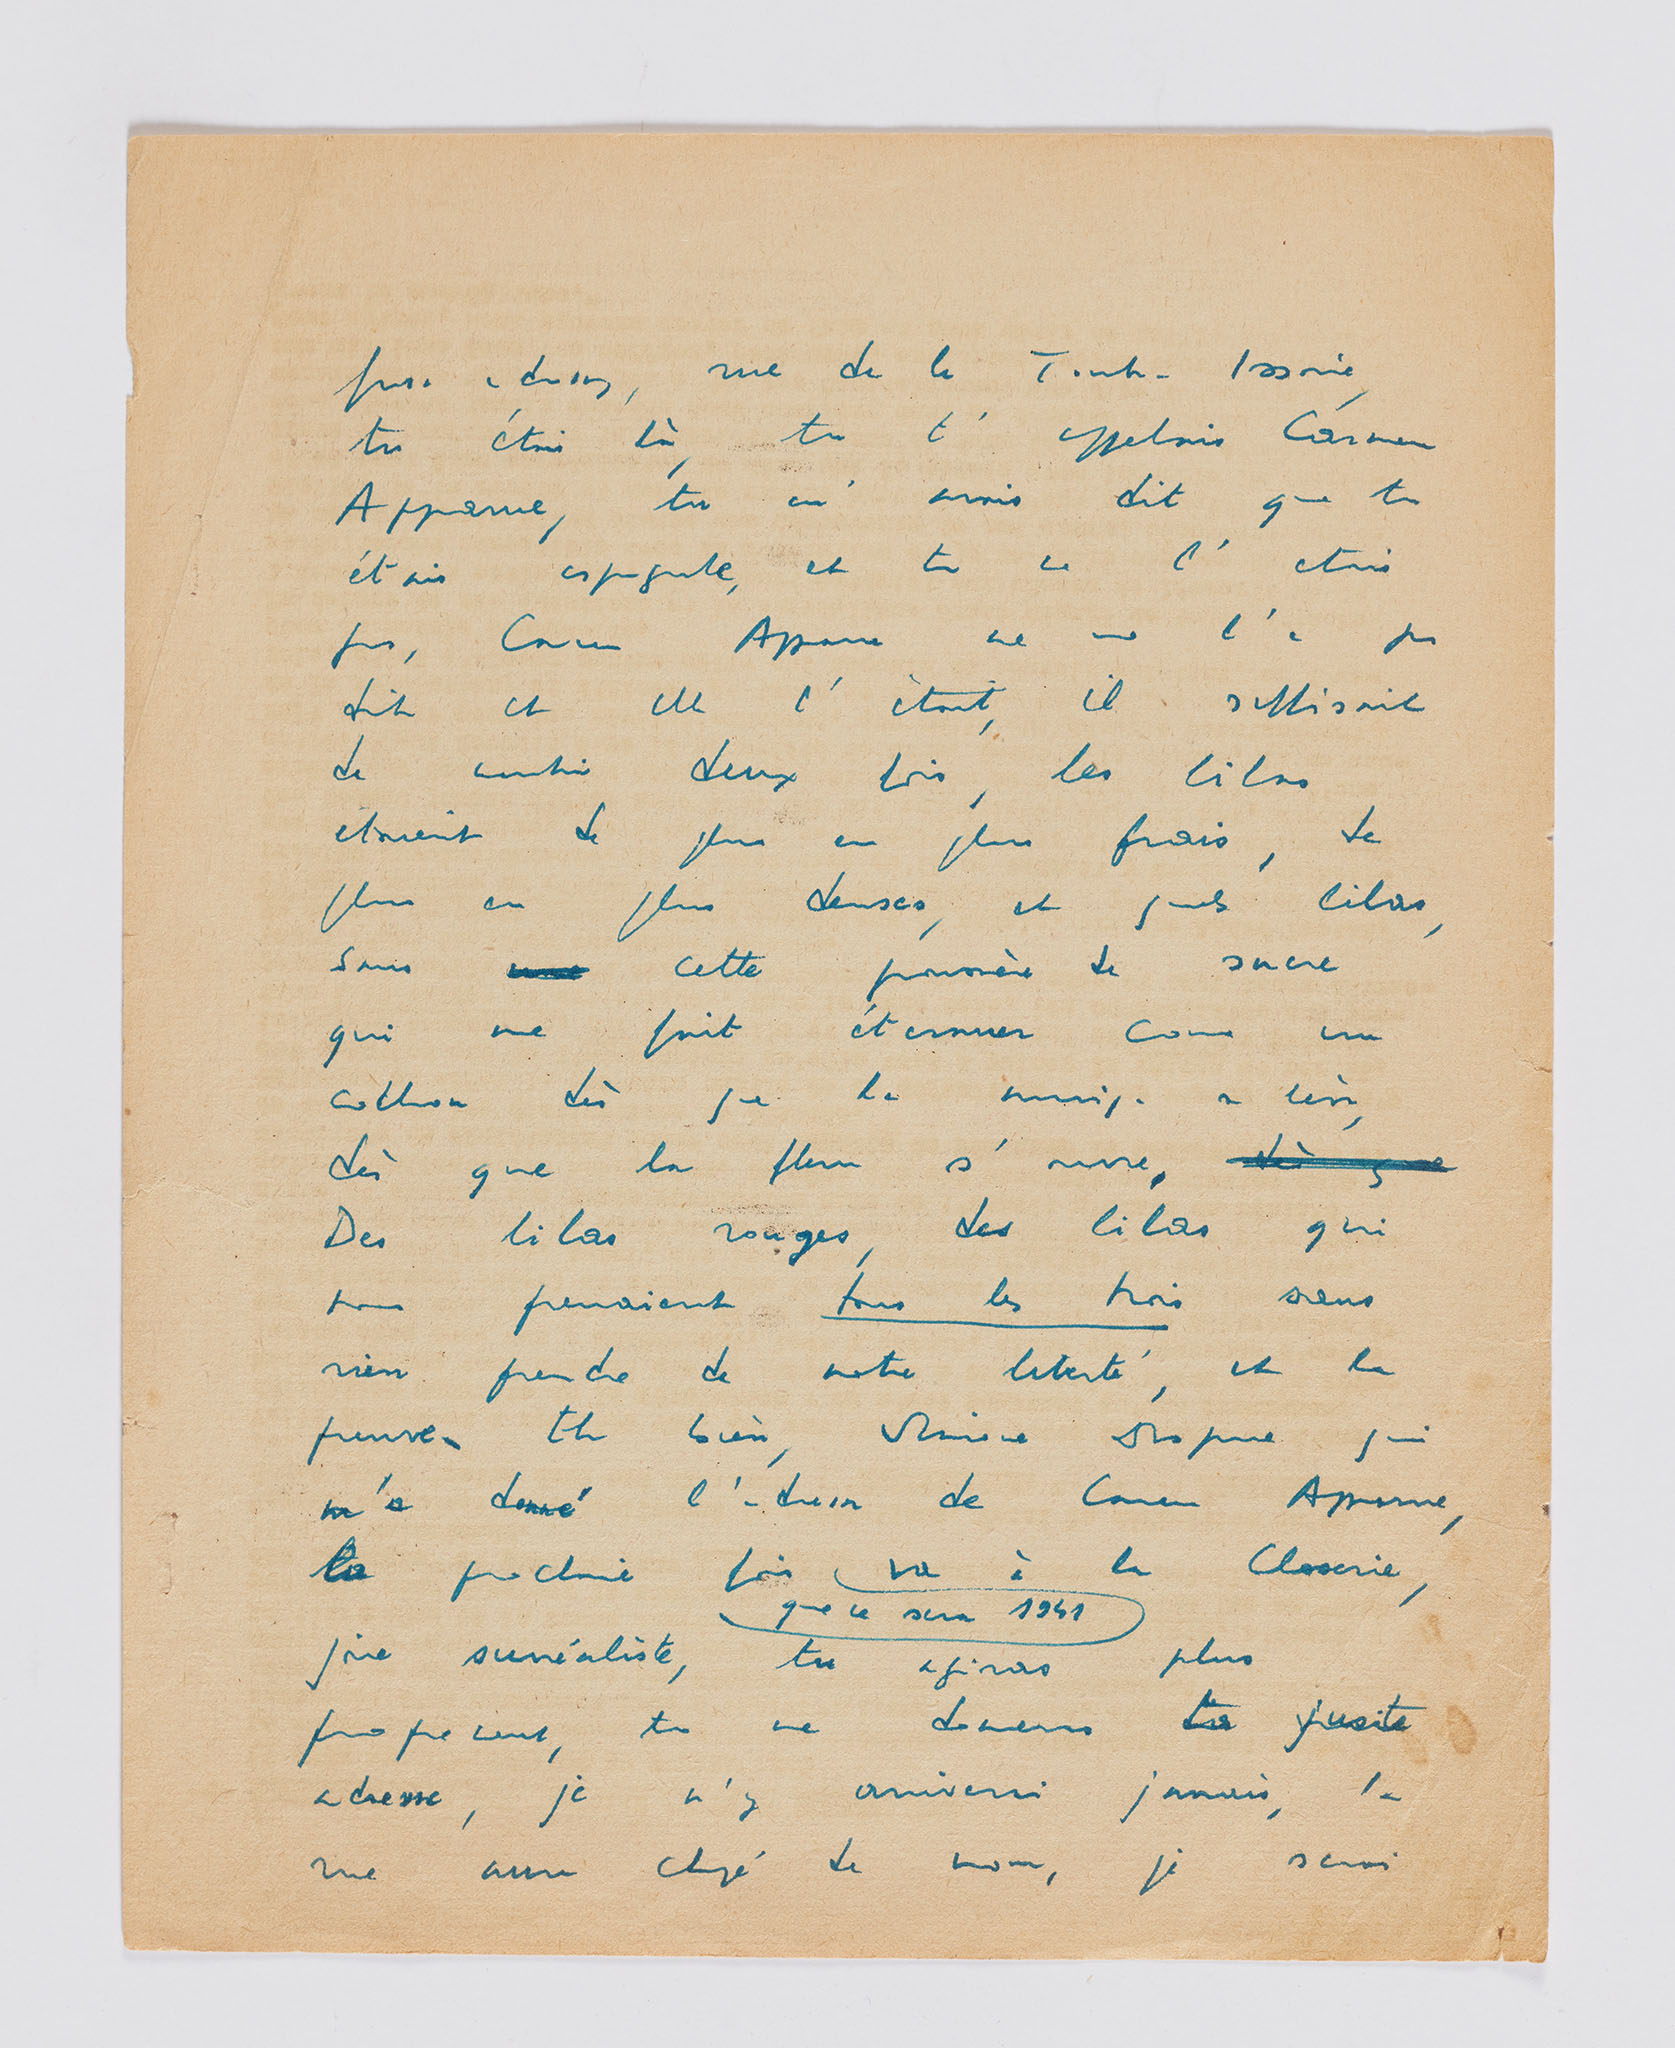 fausse adresse, rue de la Tombe Issoire,
tu étais là, tu t'appelais Carmen
Apparue, tu m'avais dit que tu
étais espagnole, et tu ne l'étais
pas, Carmen Apparue ne me l'a pas
dit et elle l'était, il suffisait
de mentir deux fois, les lilas
étaient de plus en plus frais, de
plus en plus denses, et quels lilas,
sans cette poussière de sucre
qui me fait éternuer comme un
cochon dès que la musique a lieu,
dès que la fleur s'ouvre, dès que
Des lilas rouges, des lilas qui
nous prenaient tous les trois sans
rien prendre de notre liberté, et la
preuve, eh bien, qui
m'a donné l'adresse de Carmen Apparue,
la prochaine fois va à la Closerie,
que ce sera 1941
grue surréaliste, tu agiras plus
proprement, tu me donneras la juste
adresse, je n'y arriverai jamais, la
rue aura changé de nom, je serai